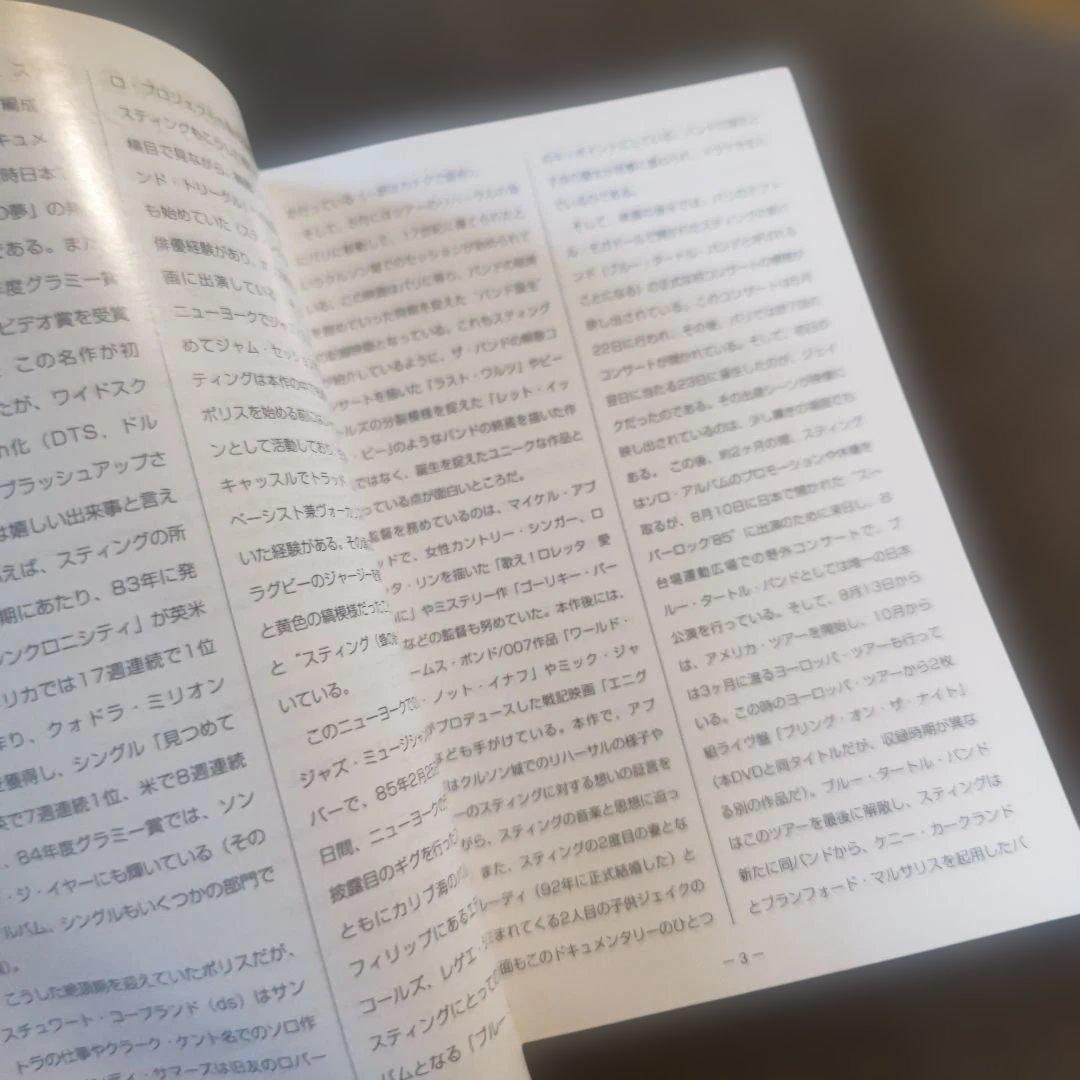 ス
編成
キュメ
時日本
の夢」の
である。また
年度グラミー賞
ビデオ賞を受賞
、この名作が初
たが、ワイドスク
化（DTS、ドル
ブラッシュアップさ
は嬉しい出来事と言え
えば、スティングの所
期にあたり、83年に発
シンクロニシティ」が英米
リカでは17週連続で1位
作り、クォドラ・ミリオン
を獲得し、シングル「見つめて
英で7週連続1位、米で8週連続
、84年度グラミー賞では、ソン
・ジ・イヤーにも輝いている（その
ルバム、シングルもいくつかの部門で
こうした絶頂期を迎えていたポリスだが、
スチュワート・コープランド（ds）はサン
トラの仕事やクラーク・ケント名でのソロ作
ンディ・サマーズは旧友のロバー
ロ・プロジェクト
スティングもこうした
横目で見ながら、
ンド・トリーグル
も始めていた（ス
俳優経験があり、
画に出演している
ニューヨークでジャ
めてジャム・セッション
ティングは本作の中でも
ポリスを始める前には
ンとして活動しており、
キャッスルでトラッド
ベーシスト兼ヴォーカ
いた経験がある。その
ラグビーのジャージー
と黄色の縞模様だった
と“スティング（
いている。
このニューヨークで
ジャズ・ミュージシャン
バーで、85年2月25
日間、ニューヨークの
披露目のギグを行った
ともにカリブ海のバ
フィリップにあるエ
コールズ、レゲエ・
スティングにとっての
バムとなる「ブルー
そして、5月にはツアーのリハーサルの為
にパリに移動して、17世紀に建てられたと
いうクルソン城でのセッションが始められて
いる。この映画はパリに移り、バンドの結束
を固めていった側面を捉えた“バンド誕生”
の記録映画となっている。これもスティング
が紹介しているように、ザ・バンドの解散コ
ンサートを描いた「ラスト・ワルツ」やビー
ルズの分裂模様を捉えた「レット・イッ
・ビー」のようなバンドの終焉を描いた作
ではなく、誕生を捉えたユニークな作品と
っている点が面白いところだ。
監督を務めているのは、マイケル・アプ
ッドで、女性カントリー・シンガー、ロ
タ・リンを描いた「歌え！ロレッタ　愛
に」やミステリー作「ゴーリキー・パー
などの監督も努めていた。本作後には、
ームス・ボンド/007作品「ワールド・
・ノット・イナフ」やミック・ジャ
がプロデュースした戦記映画「エニグ
なども手がけている。本作で、アプ
はクルソン城でのリハーサルの様子や
ーのスティングに対する想いの証言を
がら、スティングの音楽と思想に迫っ
また、スティングの2度目の妻とな
レーディ（92年に正式結婚した）と
まれてくる2人目の子供ジェイクの
面もこのドキュメンタリーのひとつ
のキーポイントにしている。バンドの誕生と
ているのである。
そして、映画の後半では、パリのテアト
ル・モガドールで開かれたスティングの新バ
ンド（ブルー・タートル・バンドと呼ばれる
ことになる）の正式な初コンサートの模様が
映し出されている。このコンサートは5月
22日に行われ、その後、パリでは計7回の
コンサートが開かれている。そして、初日の
翌日に当たる23日に誕生したのが、ジェイ
クだったのである。その出産シーンが映像に
映し出されているのは、少し驚きの場面でも
ある。この後、約2ヶ月の間、スティング
はソロ・アルバムのプロモーションや休養を
取るが、8月10日に日本で開かれた“スー
パーロック'85”に出演のために来日し、お
台場運動広場での野外コンサートで、ブ
ルー・タートル・バンドとしては唯一の日本
公演を行っている。そして、8月13日から
は、アメリカ・ツアーを開始し、10月から
は3ヶ月に渡るヨーロッパ・ツアーも行って
いる。この時のヨーロッパ・ツアーから2枚
組ライヴ盤「ブリング・オン・ザ・ナイト」
（本DVDと同タイトルだが、収録時期が異な
る別の作品だ）。ブルー・タートル・バンド
はこのツアーを最後に解散し、スティングは
新たに同バンドから、ケニー・カークランド
とブランフォード・マルサリスを起用したバ
－3－